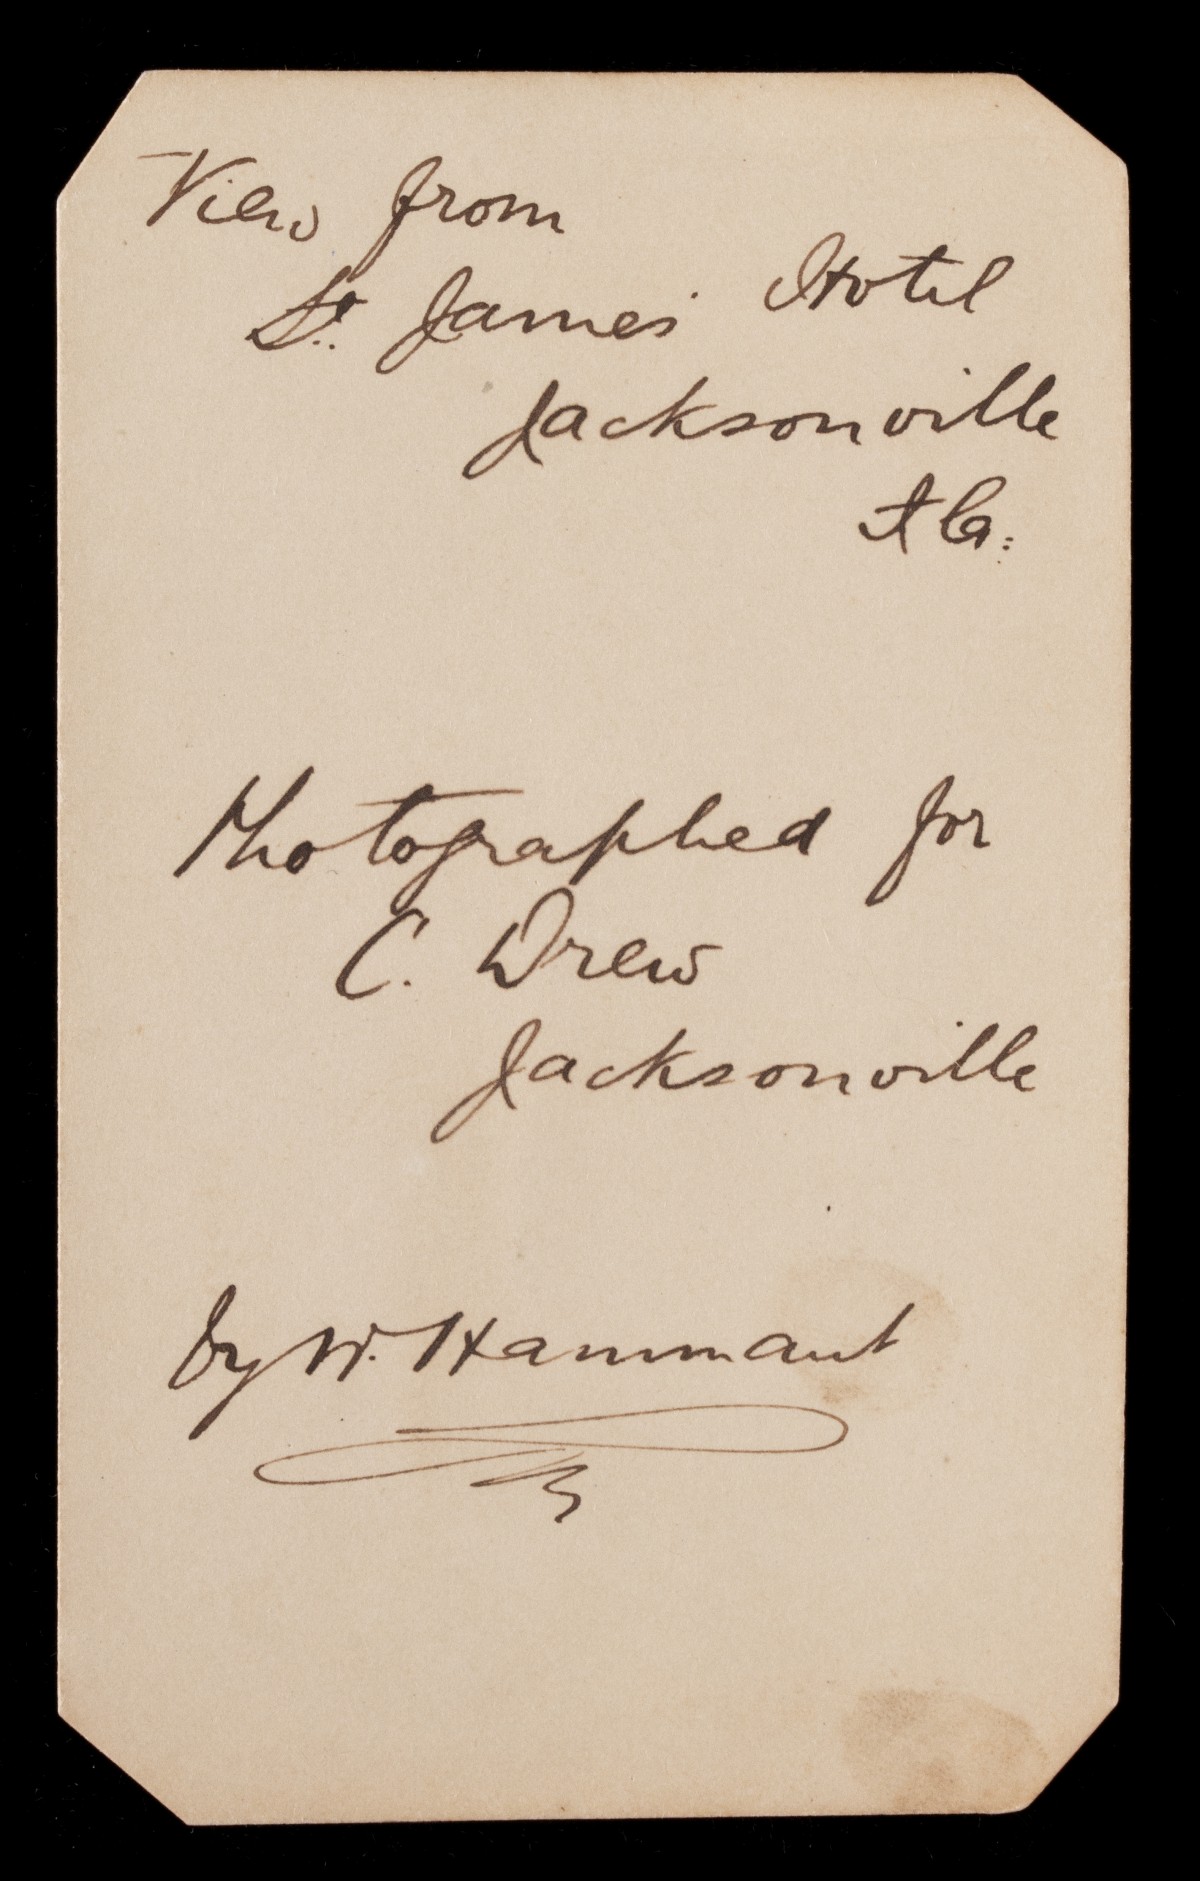 View from
St. James Hotel
Jacksonville
Fla.
Photographed for
C. Drew
Jacksonville
by W. Hammant